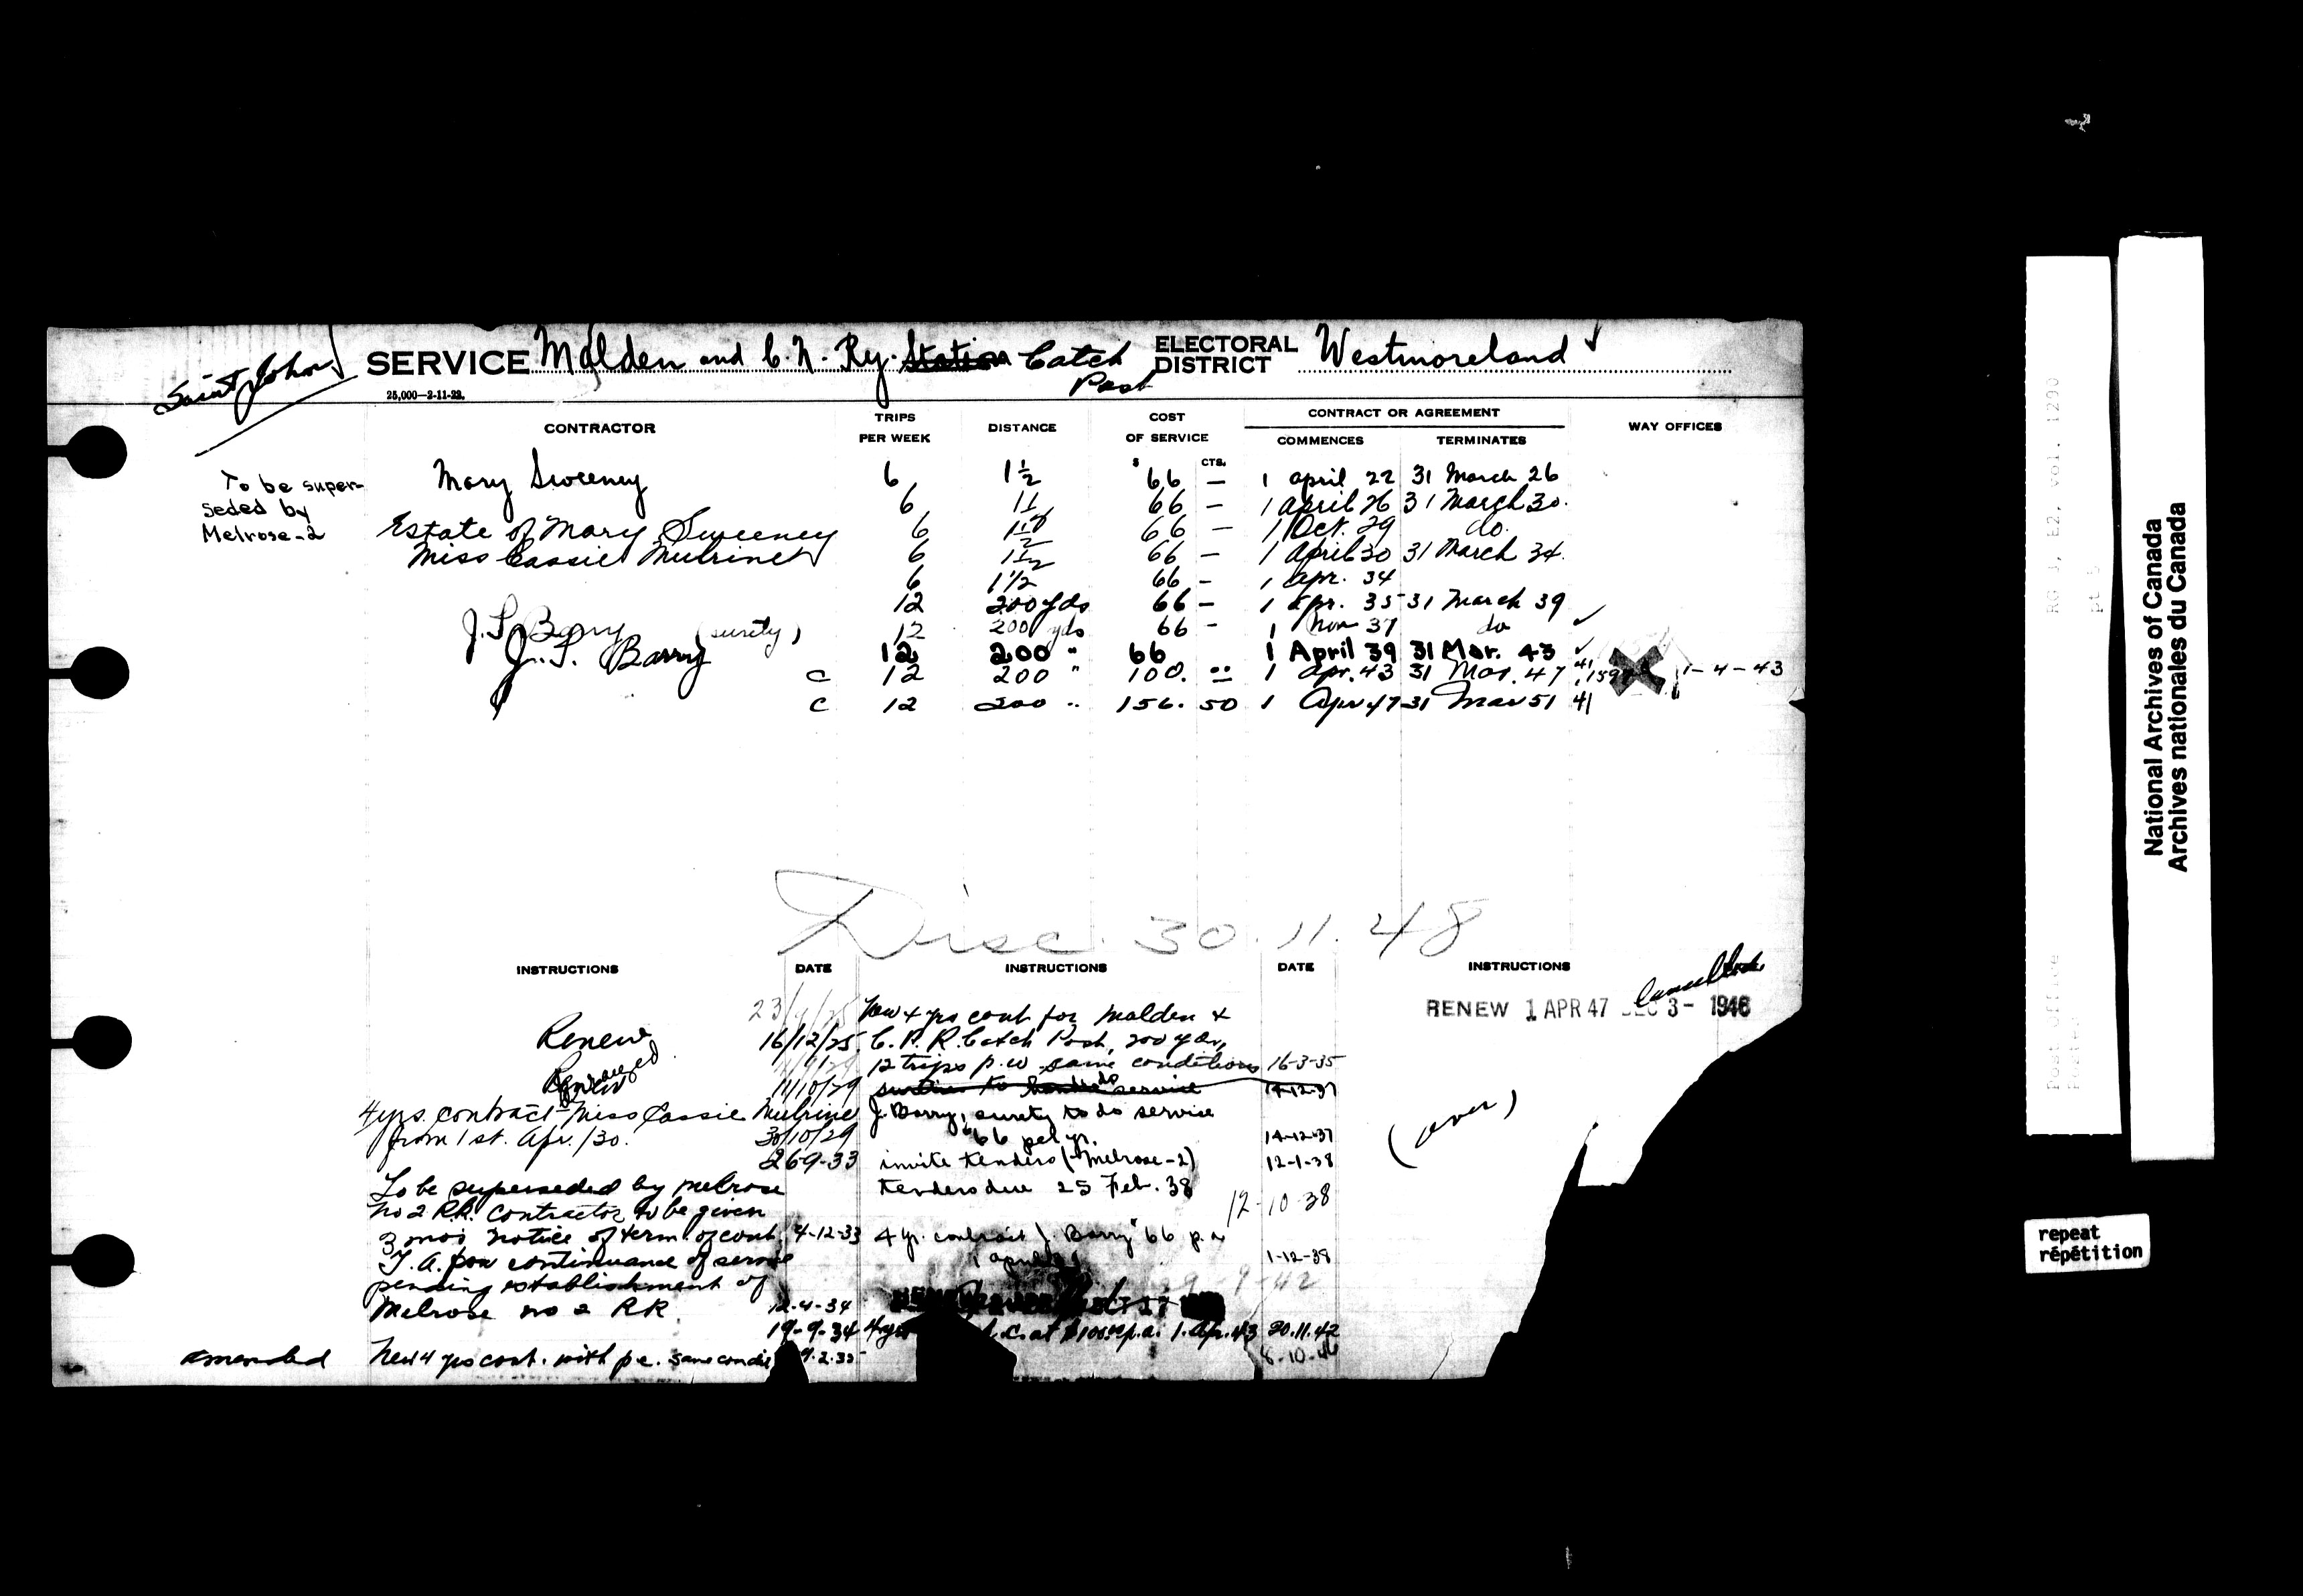 Saint John
SERVICE Malden and C. N. Ry. Station Catch Post ELECTORAL DISTRICT Westmoreland
25,000—2-11-22.
CONTRACTOR TRIPS PER WEEK DISTANCE COST OF SERVICE CONTRACT OR AGREEMENT COMMENCES TERMINATES WAY OFFICES
$ CTS.
To be super-
seded by
Melrose-2
Mary Sweeney 6 1½ 66 — 1 April 22 31 March 26
6 1½ 66 — 1 April 26 31 March 30.
Estate of Mary Sweeney 6 1½ 66 — 1 Oct. 29 do.
Miss Cassie Mulrine 6 1½ 66 — 1 April 30 31 March 34.
6 1½ 66 – 1 Apr. 34
12 200 yds 66 – 1 Apr. 35 31 March 39
J. S. Barry (surety) 12 200 yds 66 – 1 Nov 37 do
J. S. Barry 12 200 " 66 1 April 39 31 Mar. 43
C 12 200 " 100. 1 Apr. 43 31 Mar. 47 41 1-4-43
C 12 200 " 156. 50 1 Apr 47 31 Mar 51 41
Disc. 30.11.48
INSTRUCTIONS DATE INSTRUCTIONS DATE INSTRUCTIONS
Cancelled
RENEW 1 APR 47 DEC 3 - 1946
Renew 16/12/25
11/10/29
4 yrs. contract - Miss Cassie Mulrine
from 1st. Apr. /30. 30/10/29
26-9-33
To be superseded by Melrose
No 2 R.R. Contractor to be given
3 mos notice of term of cont. 4-12-33
T. A. for continuance of service
pending establishment of
Melrose no 2 RR 12-4-34
19-9-34
amended New 4 yrs cont. with p.c. same condit 9.2.35
New 4 yrs cont for Malden &
C. N. R. Catch Post, 200 yds,
12 trips p.w same conditions 16-3-35
14-12-37
J. Barry, surety to do service
$66 per yr. 14-12-37
invite tenders (Melrose-2) 12-1-38
tenders due 25 Feb. 38
12-10-38
4 yr. contract J. Barry $66 p.a
1-12-38
9-42
at $100.00 p.a. 1. Apr. 43 20.11.42
8-10-46
(over)
National Archives of Canada
Archives nationales du Canada
RG 3, E2, vol. 1290
pt 5
Post Office
repeat
répétition